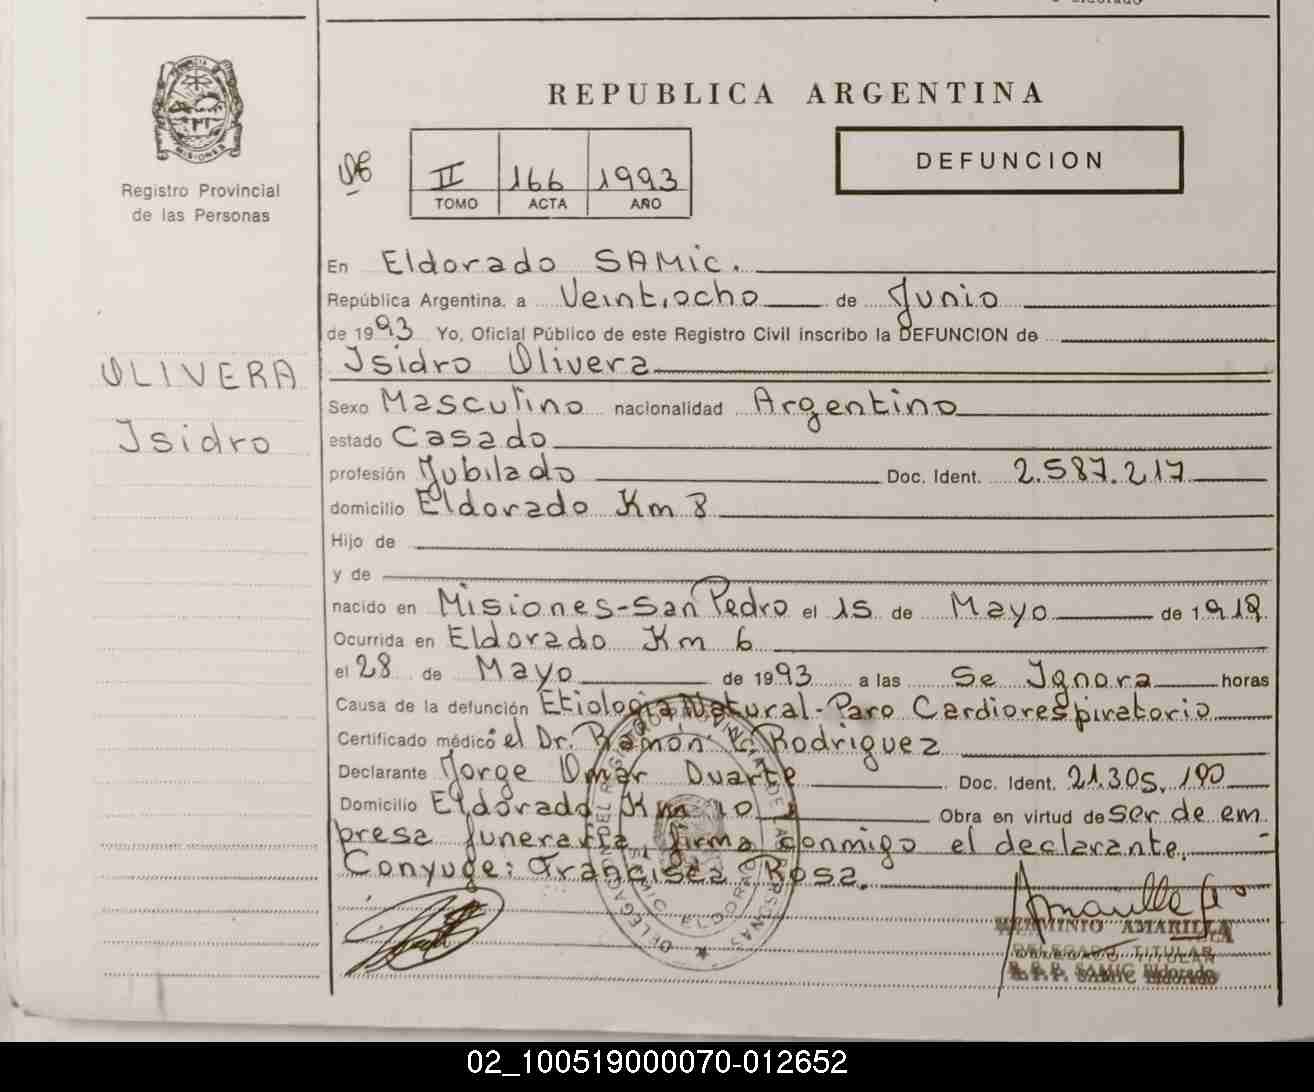 REPUBLICA ARGENTINA
PROVINCIA DE
MISIONES
Registro Provincial
de las Personas
II 166 1993
TOMO ACTA AÑO
DEFUNCION
En Eldorado SAMic.
República Argentina, a Veintiocho de Junio
de 1993 Yo, Oficial Público de este Registro Civil inscribo la DEFUNCION de
Isidro Olivera
OLIVERA
Isidro
Sexo Masculino nacionalidad Argentino
estado Casado
profesión Jubilado Doc. Ident. 2.587.217
domicilio Eldorado Km 8
Hijo de
y de
nacido en Misiones-San Pedro el 15 de Mayo de 1918
Ocurrida en Eldorado Km 6
el 28 de Mayo de 1993 a las Se Ignora horas
Causa de la defunción Etiologia Natural-Paro Cardiorespiratorio
Certificado médico el Dr. Ramon L. Rodriguez
Declarante Jorge Omar Duarte Doc. Ident. 21.305.190
Domicilio Eldorado Km 10 Obra en virtud de ser de em
presa funeraria, firma conmigo el declarante.
Conyuge: Francisca Rosa.
HERMINIO AMARILLA
DELEGADO TITULAR
R. P. P. SAMIC Eldorado
02_100519000070-012652